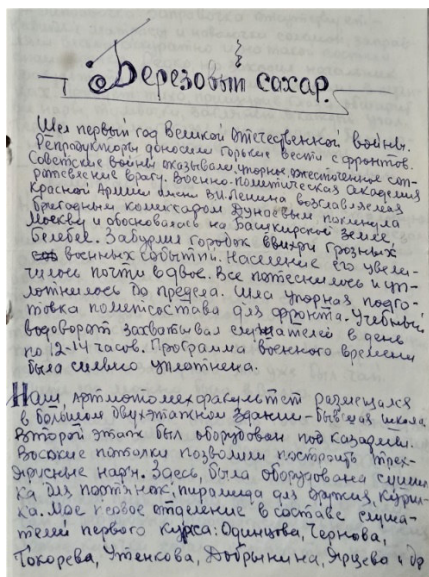 Березовый сахар.
Шел первый год Великой Отечественной войны.
Репродукторы доносили горькие вести с фронтов.
Советские войны оказывали упорное, ожесточенное соп-
ротивление врагу. Военно-политическая академия
Красной Армии имени В.И. Ленина возглавляемая
бригадным комиссаром Дунаевым покинула
Москву и обосновалась на Башкирской земле
Белебее. Забурлил городок в вихре грозных
военных событий. Население его увели-
чилось почти вдвое. Все потеснилось и уп-
лотнилось до предела. Шла упорная подго-
товка политсостава для фронта. Учебный
водоворот захватывал слушателей в день
по 12-14 часов. Программа военного времени
была сильно уплотнена.
Наш, артмотомехфакультет размещался
в большом двухэтажном здании - бывшая школа.
Второй этаж был оборудован под казармы.
Высокие потолки позволили построить трех-
ярусные нары. Здесь, была оборудована сушил
ка для портянок, пирамида для оружия, курил-
ка. Мое первое отделение в составе слуша-
телей первого курса: Одинцова, Чернова,
Токорева, Утенкова, Добрынина, Ярцева и др